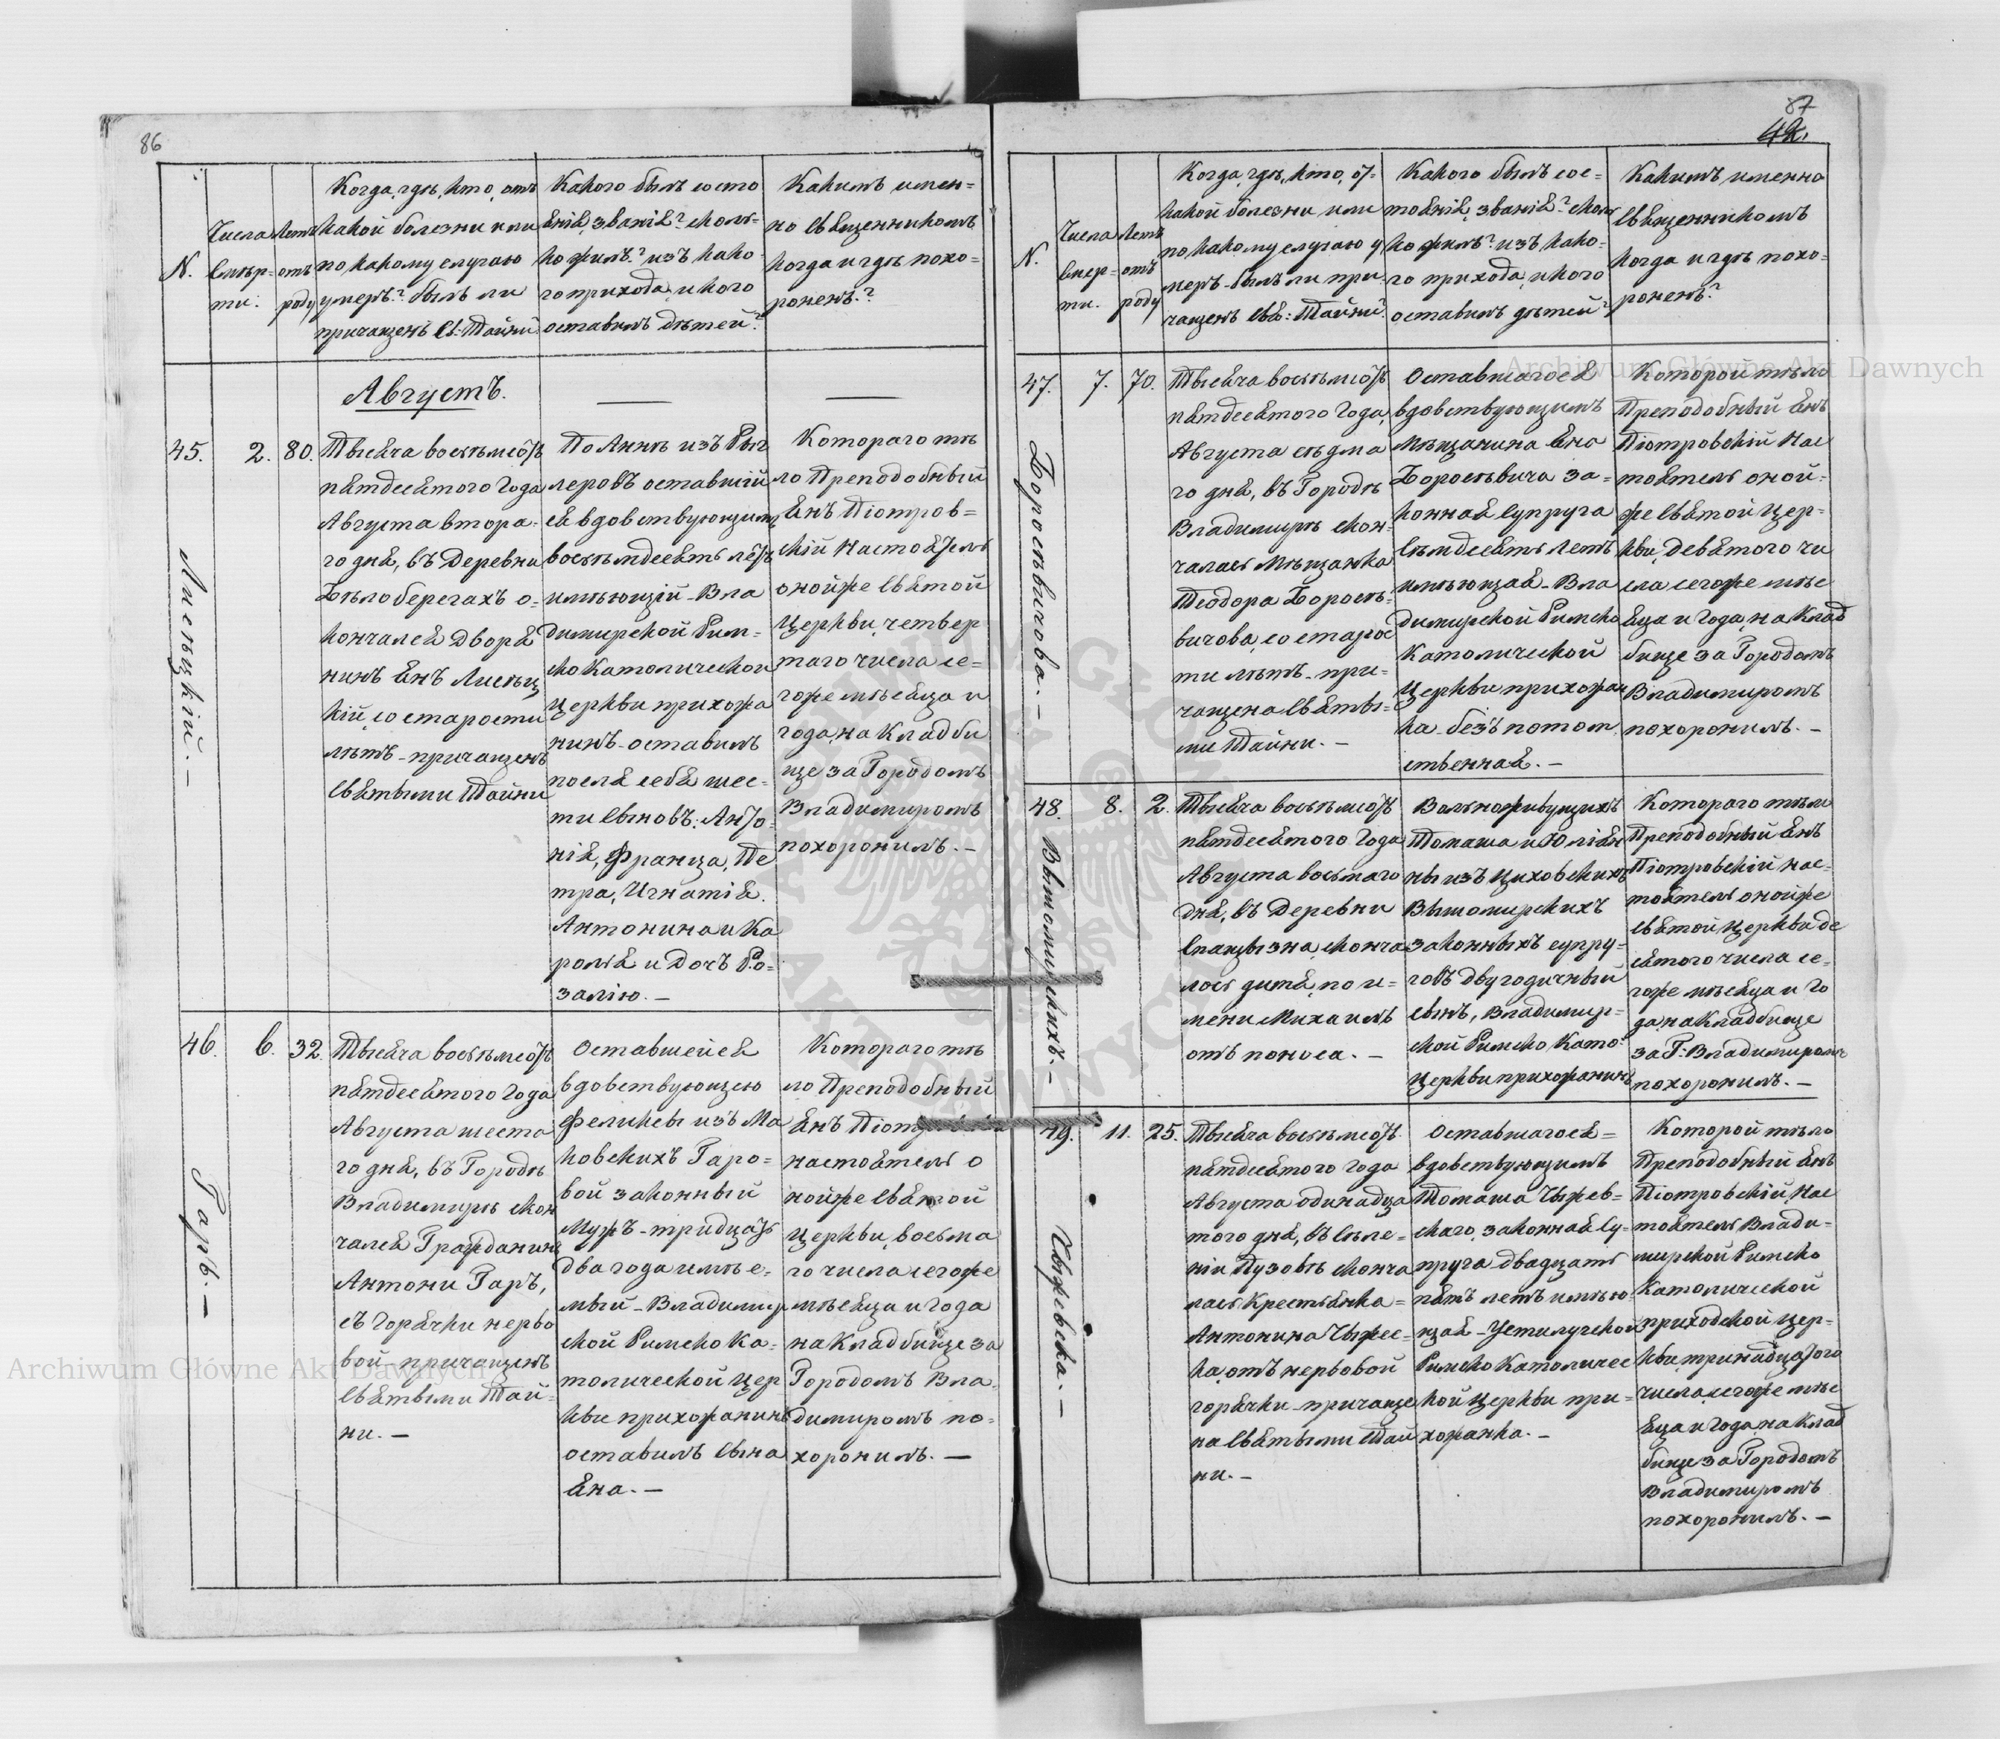 86
N.
Числа смер-
ти.
Летъ
отъ
роду
Когда, гдѣ, кто, отъ
какой болезни или
по какому случаю
умеръ? былъ ли
причащенъ Св: Тайни?
Какого былъ состо
янія, званія? сколь-
ко жилъ? изъ како
го прихода, и кого
оставилъ дѣтей?
Какимъ имен-
но священникомъ
когда и гдѣ похо-
роненъ?
Августъ.
45.
Лисѣцкій. —
2.
80.
Тысяча восѣмсотъ
пятдесятого Года
Августа втора-
го дня, въ Деревни
Бѣлоберегахъ о-
кончался Дворя
нинъ Янъ Лисѣц
кій, со старости
лѣтъ - причащенъ
Святыми Тайни
По Аннѣ изъ
леровъ оставшій
ся вдовствующимъ
восѣмдесять лѣтъ
имѣющій - Вла
димирской Рим-
ско Католической
Церкви прихожа
нинъ - оставилъ
после себя шес-
ти сыновъ: Анто-
нія, Франца, Пе
тра, Игнатія,
Антонина и Ка
роля и Дочь Ро-
залію. —
Котораго тѣ
ло Преподобный
Янъ Піотров-
скій Настоятель
онойже Святой
Церкви, четвер
таго числа се-
гоже мѣсяца и
года, на Кладби
ще за Городомъ
Владимиромъ
похоронилъ. —
46.
Гаръ. —
6.
32.
Тысяча восѣмсотъ
пятдесятого Года
Августа шеста
го дня, въ Городѣ
Владимирѣ скон
чался Гражданинъ
Антони Гаръ,
съ горячки нерво
вой - причащенъ
Святыми Тай-
ни. —
Оставшейся
вдовствующею
Феликсы изъ Ма
ковскихъ Гаро-
вой законный
Мужъ - тридцать
два года имѣе-
мый - Владимир
ской Римско Ка-
толической Цер
кви прихожанинъ
оставилъ сына
Яна. —
Котораго тѣ
ло Преподобный
Янъ
настоятель о
нойже Святой
Церкви, восьма
го числа сегоже
мѣсяца и Года
на Кладбище за
Городомъ Вла-
димиромъ по-
хоронилъ. —
87
N.
Числа
смер-
ти.
Летъ
отъ
роду
Когда, гдѣ, кто, от-
какой болезни или
по какому случаю у
меръ - былъ ли при
чащенъ Свя: Тайни?
Какого былъ сос-
тоянія, званія? сколь
ко жилъ? изъ како-
го прихода, и кого
оставилъ дѣтей?
Какимъ, именно
священникомъ
когда и гдѣ похо-
роненъ?
47.
Боросѣвичова. —
7.
70.
Тысяча восѣмсотъ
пятдесятого Года,
Августа сѣдма
го дня, въ Городѣ
Владимирѣ скон-
чалась Мѣщанка
Теодора Боросѣ-
вичова, со старос
ти лѣтъ - при-
чащена Святы-
ми Тайни. —
Оставшагося
вдовствующимъ
Мѣщанина Яна
Боросѣвича за-
конная супруга
сѣмдесять летъ
имѣющая - Вла
димирской Римско
Католической
Церкви прихожан
ка - безъ потом
ственная. —
Которой тѣло
Преподобный Янъ
Піотровскій Нас
тоятель оной-
же Святой Цер-
кви, девятого чи
сла сегоже мѣс
яца и Года, на Клад
бище за Городомъ
Владимиромъ
похоронилъ. —
48.
Вытомирскихъ. —
8.
2.
Тысяча восѣмсотъ
пятдесятого Года
Августа восьмаго
дня, въ Деревни
сконча
лось дитя, по и-
мени Михаилъ
отъ поноса. —
Вольноживущихъ
Томаша и Юліян
ны изъ Циховскихъ
Вытомирскихъ
законныхъ супру-
говъ двугодичный
сынъ, Владимир-
ской Римско Като:
Церкви прихожанинъ
Котораго тѣло
Преподобный Янъ
Піотровскій Нас-
тоятель онойже
святой Церкви де
сятого числа се-
гоже мѣсяца и Го
да, на Кладбище
за Г: Владимиромъ
похоронилъ. —
49.
Чыжевска. —
11.
25.
Тысяча восѣмсотъ
пятдесятого Года
Августа одинадца
того дня, въ Сѣле-
ніи Пузовѣ сконча
лась Крестьянка =
Антонина Чыжес-
ка, отъ нервовой
горячки - причаще
на Святыми Тай
ни. —
Оставшагося =
вдовствующимъ
Томаша Чыжев-
скаго, законная Су-
пруга двадцать
пять летъ имѣю-
щая - Устилугской
Римско Католичес
кой Церкви при-
хожанка. —
Которой тѣло
Преподобный Янъ
Піотровскій Нас
тоятель Влади-
мирской Римско
Католической
приходской Цер-
кви, тринадцатого
числа, сегоже мѣс
яца и Года, на Клад
бище за Городомъ
Владимиромъ
похоронилъ. —
Archiwum Główne Akt Dawnych
Archiwum Główne Akt Dawnych